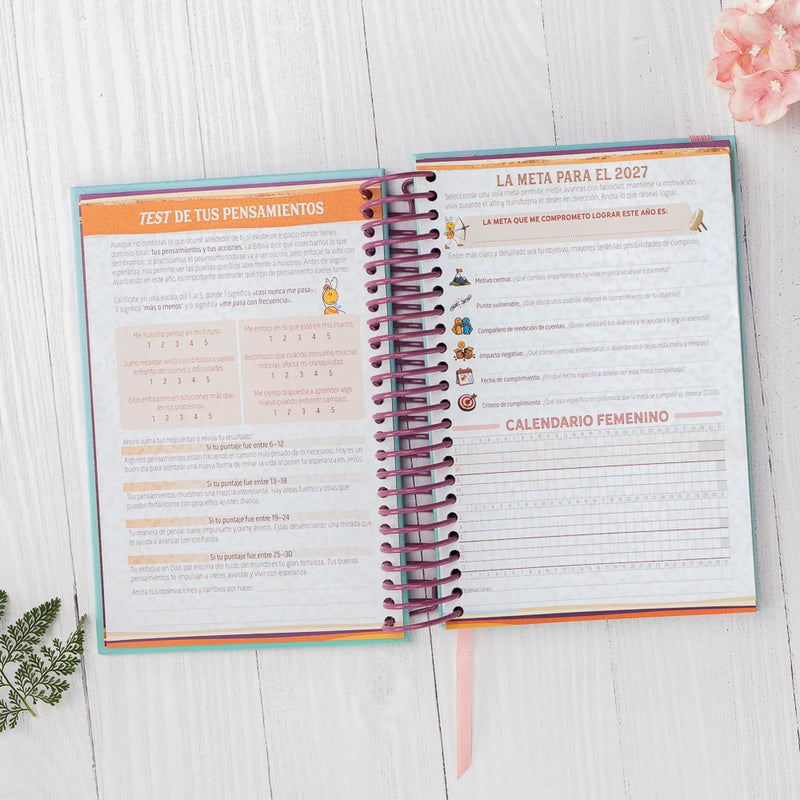 TEST DE TUS PENSAMIENTOS
Aunque no controlas lo que ocurre alrededor de ti, sí existe un espacio donde tienes
dominio total: tus pensamientos y tus acciones. La Biblia dice que cosechamos lo que
sembramos: si practicamos el pesimismo todo se va a ver oscuro, pero enfocar la vida con
esperanza, nos permite ver las puertas que Dios abre frente a nosotros. Antes de seguir
avanzando en este año, es importante reconocer qué tipo de pensamiento sueles tener.
Califícate en una escala del 1 al 5, donde 1 significa «casi nunca me pasa»,
3 significa «más o menos» y 5 significa «me pasa con frecuencia».
Me ilusiona pensar en mi futuro.
1 2 3 4 5
Suelo recordar versículos bíblicos cuando
enfrento decisiones o dificultades.
1 2 3 4 5
Elijo enfocarme en soluciones más que
en los problemas.
1 2 3 4 5
Me enfoco en lo que está en mis manos.
1 2 3 4 5
Reconozco que cuando consumo muchas
noticias, afecta mi tranquilidad.
1 2 3 4 5
Me siento dispuesta a aprender algo
nuevo cuando enfrento cambios.
1 2 3 4 5
Ahora suma tus respuestas y revisa tu resultado:
Si tu puntaje fue entre 6–12
Algunos pensamientos están haciendo el camino más pesado de lo necesario. Hoy es un
buen día para sembrar una nueva forma de mirar la vida al poner tu esperanza en Jesús.
Si tu puntaje fue entre 13–18
Tus pensamientos muestran una mezcla interesante. Hay áreas fuertes y otras que
pueden fortalecerse con pequeños ajustes diarios.
Si tu puntaje fue entre 19–24
Tu manera de pensar suele impulsarte y darte ánimo. Estás desarrollando una mirada que
te ayuda a avanzar con confianza.
Si tu puntaje fue entre 25–30
Tu enfoque en Dios por encima del ruido del mundo es tu gran fortaleza. Tus buenos
pensamientos te impulsan a crecer, avanzar y vivir con esperanza.
Anota tus observaciones y cambios por hacer:
LA META PARA EL 2027
Seleccionar una sola meta permite medir avances con facilidad, mantiene la motivación
viva durante el año y transforma el deseo en dirección. Anota lo que deseas lograr.
LA META QUE ME COMPROMETO LOGRAR ESTE AÑO ES:
Entre más clara y detallado sea tu objetivo, mayores serán las posibilidades de cumplirlo.
Motivo central. ¿Qué cambio importante en tu vida implica alcanzar esta meta?
Punto vulnerable. ¿Qué obstáculos podrían detener el cumplimiento de tu objetivo?
Compañero de rendición de cuentas. ¿Quién verificará tus avances y te ayudará a seguir adelante?
Impacto negativo. ¿Qué consecuencias enfrentarías si abandonas o dejas esta meta a medias?
Fecha de cumplimiento. ¿En qué fecha específica deseas ver esta meta completada?
Criterio de cumplimiento. ¿Qué dato específico te confirmará que la meta se cumplió? ej: Ahorrar $1,000
CALENDARIO FEMENINO
Observaciones: